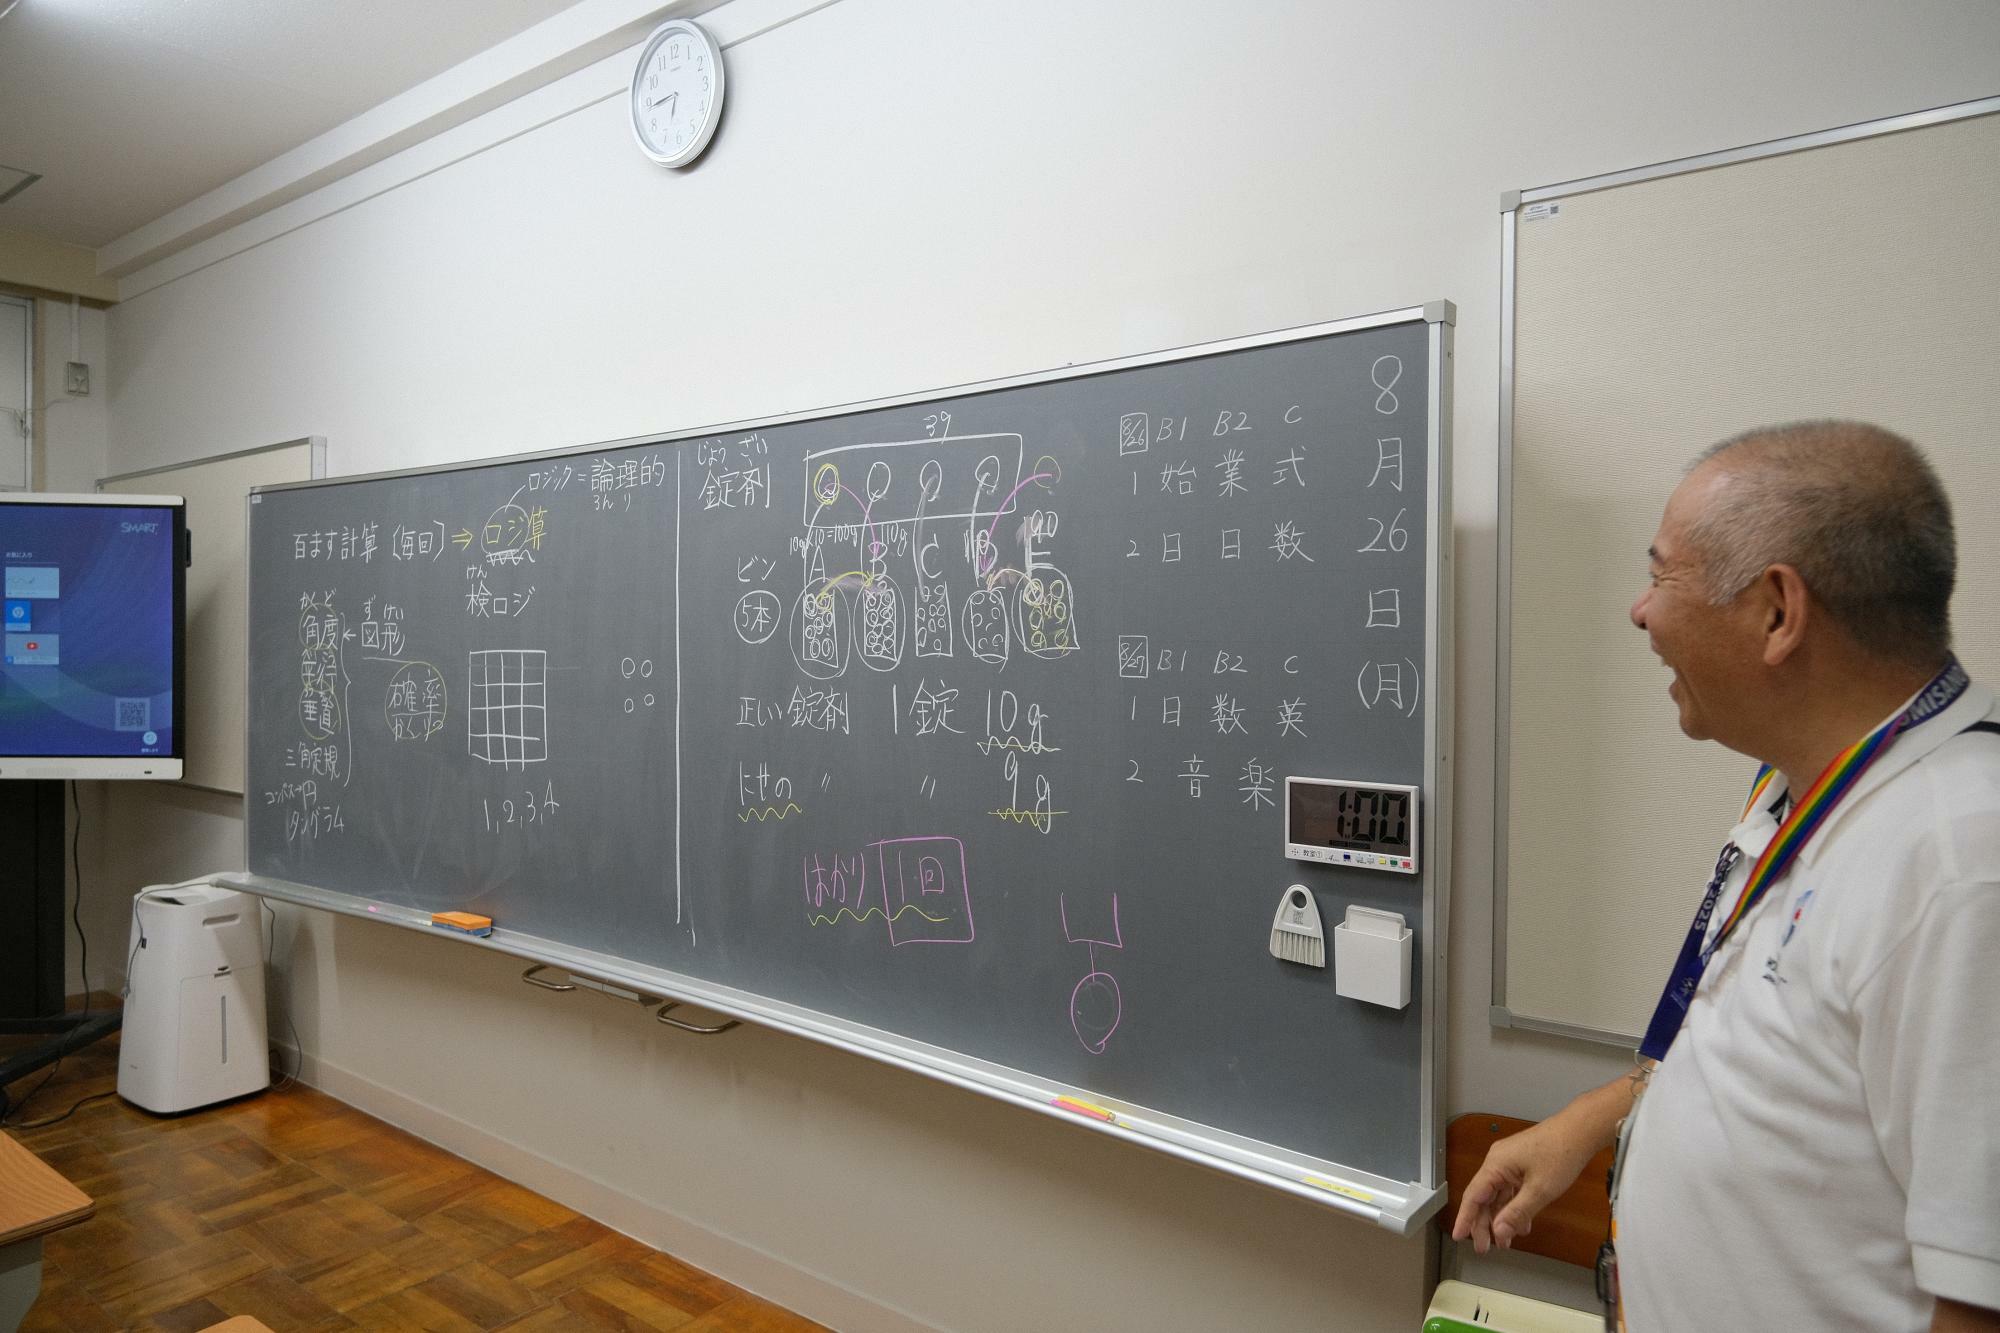 8月26日(月)
8/26 B1 B2 C
1 始 業 式
2 日 日 数
8/27 B1 B2 C
1 日 数 英
2 音 楽
ロジック=論理的
ろんり
百ます計算(毎回)⇒ロジ算
けん
検ロジ
かくど
角度
ずけい
図形
平行
垂直
確率
三角定規
コンパス→円
タングラム
1,2,3,4
じょうざい
錠剤
39
10g×10=100g
110g
190
A B C D E
ビン
5本
正しい錠剤 1錠 10g
にせの 〃 〃 9g
はかり 1回
1:00
教室①
SMART
お気に入り
12 1 2 3 4 5 6 7 8 9 10 11
2025